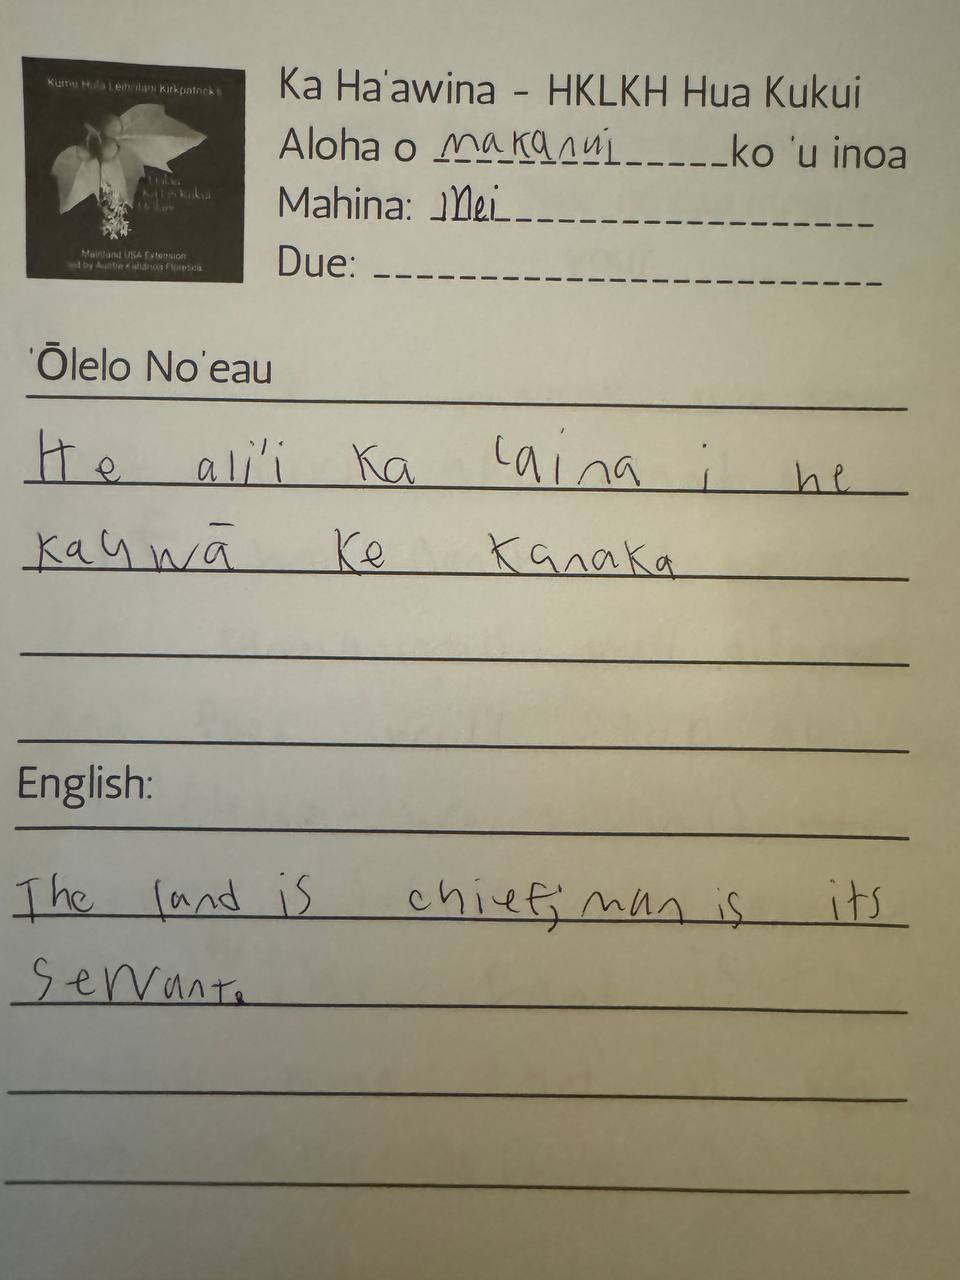 Kumu Hula Leihiilani Kirkpatrick's
Mainland USA Extension
led by Auntie Kahanoa Floresca
Ka Ha'awina - HKLKH Hua Kukui
Aloha o makanui ko 'u inoa
Mahina: Mei
Due:
'Ōlelo No'eau
He ali'i Ka 'aina i he
kauwā Ke Kanaka
English:
The land is chief; man is its
servant.